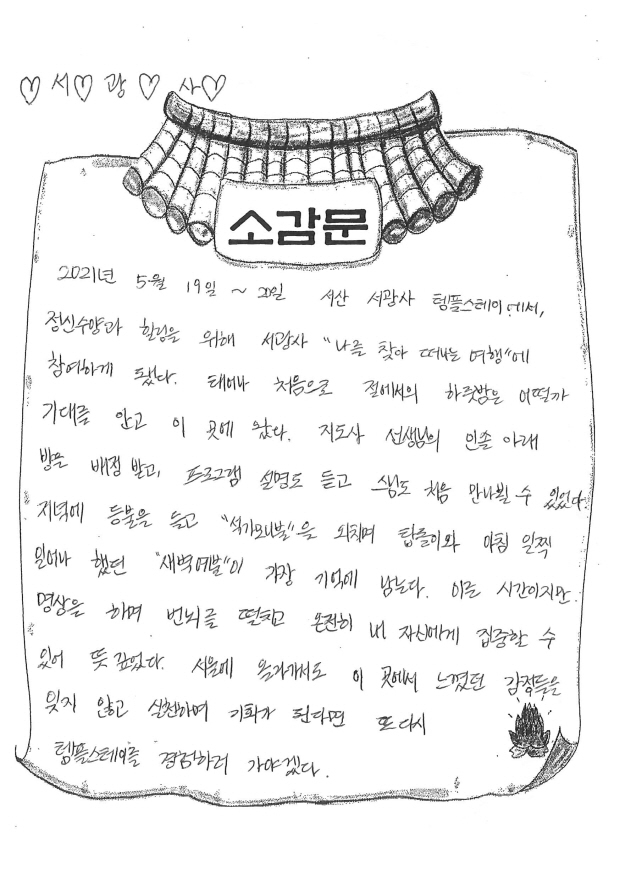 ♡ 서 ♡ 광 ♡ 사 ♡
소감문
2021년 5월 19일 ~ 20일 서산 서광사 템플스테이에서,
정신수양과 힐링을 위해 서광사 "나를 찾아 떠나는 여행"에
참여하게 됐다. 태어나 처음으로 절에서의 하룻밤은 어떨까
기대를 안고 이 곳에 왔다. 지도사 선생님의 인솔 아래
방을 배정 받고, 프로그램 설명도 듣고 스님도 처음 만나뵐 수 있었다.
저녁에 등불을 들고 "석가모니불"을 외치며 탑돌이와 아침 일찍
일어나 했던 "새벽예불"이 가장 기억에 남는다. 이른 시간이지만
명상을 하며 번뇌를 떨치고 온전히 내 자신에게 집중할 수
있어 뜻 깊었다. 서울에 올라가서도 이 곳에서 느꼈던 감정들을
잊지 않고 실천하며 기회가 된다면 또 다시
템플스테이를 경험하러 가야겠다.